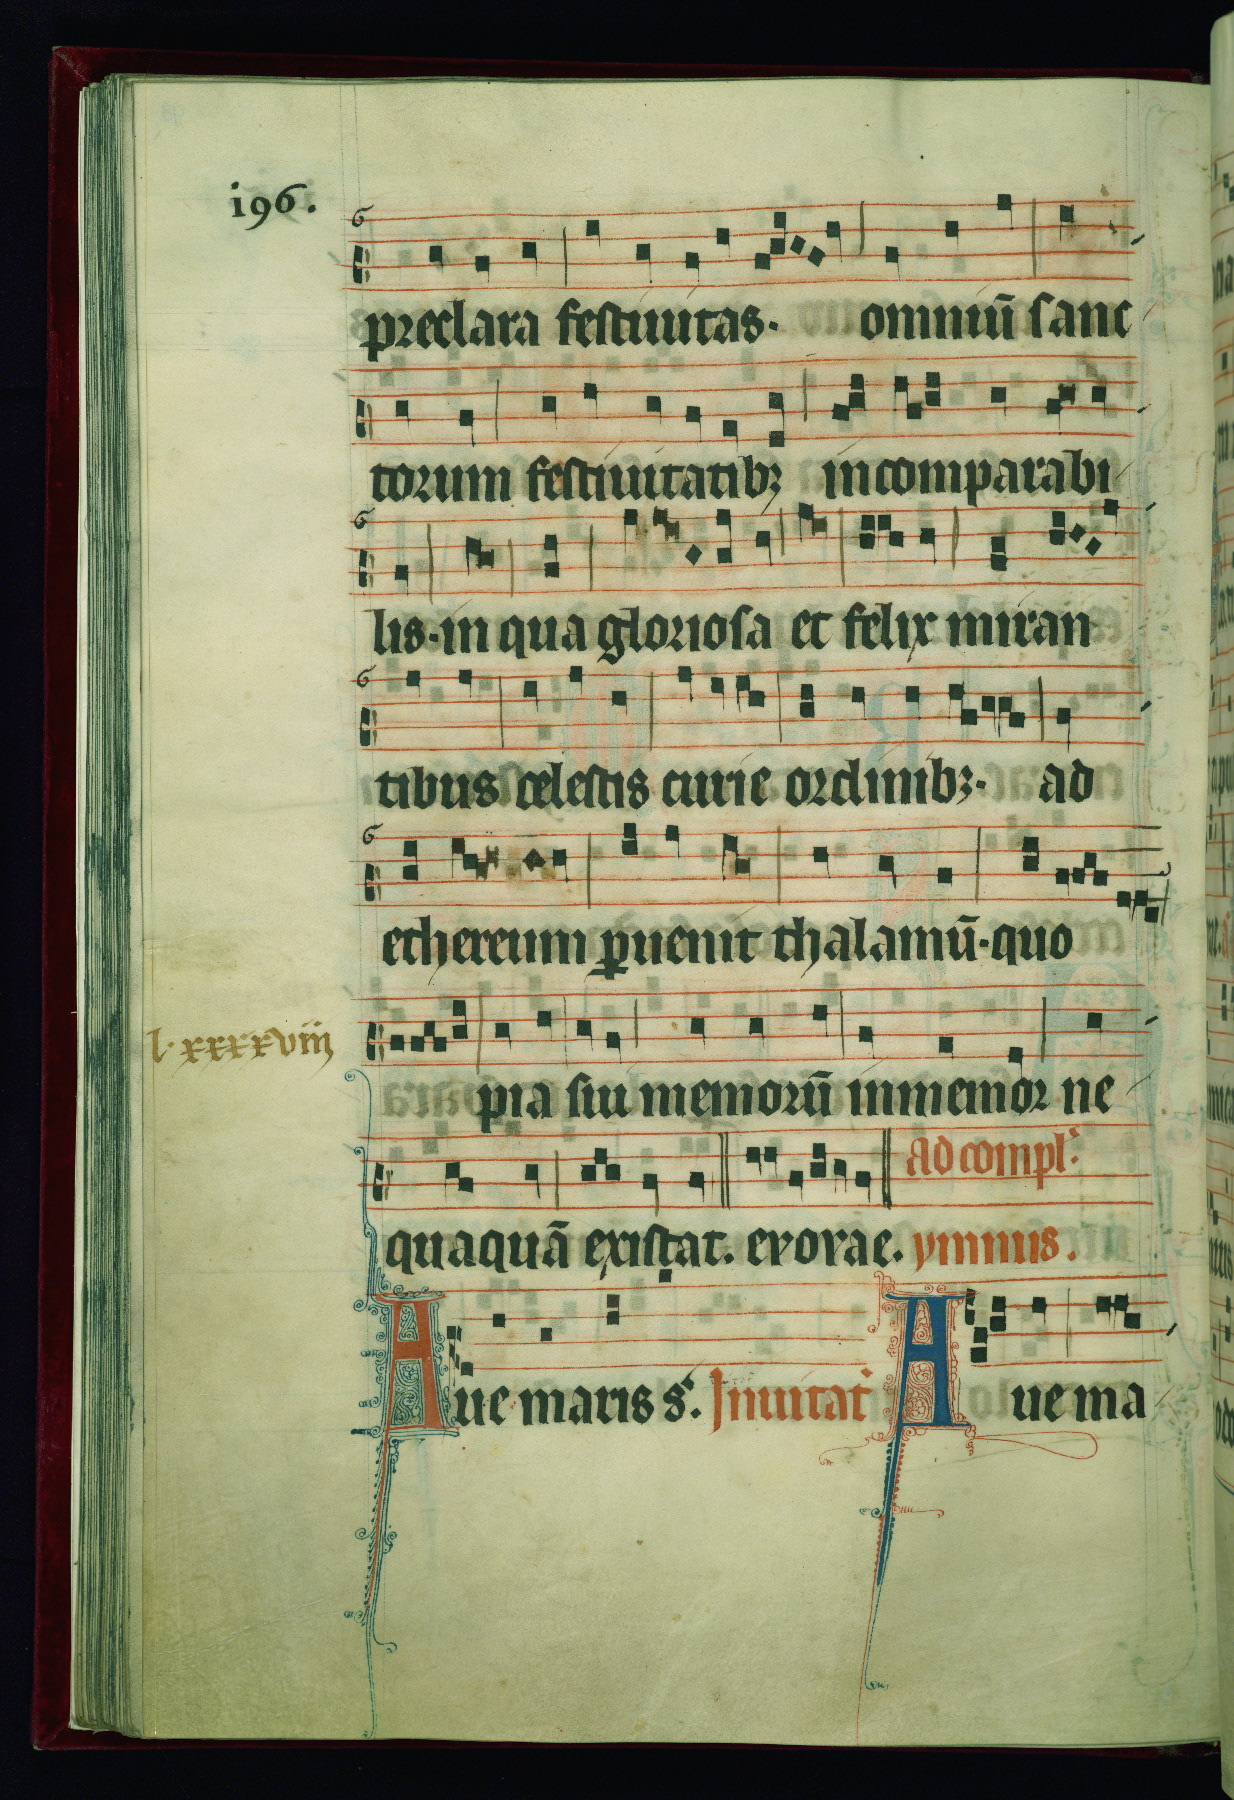 i96.
preclara festiuitas· omniū sanc
torum festiuitatibꝫ incomparabi
lis·in qua gloriosa et felix miran
tibus celestis curie ordinibꝫ· ad
ethereum ꝑuenit thalamū·quo
l·xxxxviiij
pia sui memorū inmemor ne
Ad compl'
quaquā existat. evovae. ymnus.
Aue maris s̄. Inuitat' Aue ma